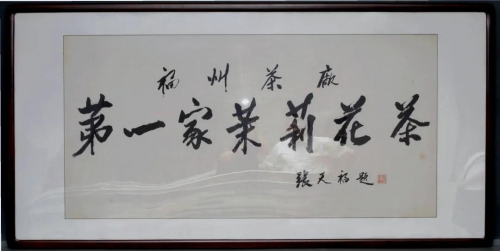 福州茶廠
第一家茉莉花茶
張天福題